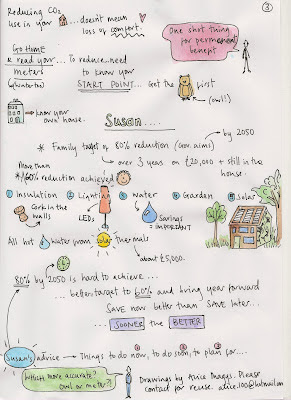 Reducing CO2
use in your ... doesn't mean
loss of comfort.
3
One shot thing
for permanent
benefit
Go Home
& read your...
meters
(Water too)
To reduce need
to know your
START POINT... Get the owl first
(owl!)
know your
own house.
Susan....
* Family target of 80% reduction (Gov. aims)
by 2050
over 3 years on £20,000 + still in the
house.
More than
* 60% reduction achieved
1 Insulation 2 Lighting 3 Water 4 Garden 5 Solar
Cork in the
walls
LEDs
Savings
= IMPORTANT
All hot water from solar thermals
about £5,000.
80% by 2050 is hard to achieve...
... better target to 60% and bring year forward
SAVE now better than SAVE later...
... SOONER the BETTER
Susan's advice → Things to do now, to do soon, to plan for....
1 2 3
Which more accurate?
owl or meter?!
Drawings by Alice Images. Please
contact for reuse. alice.100@hotmail.com